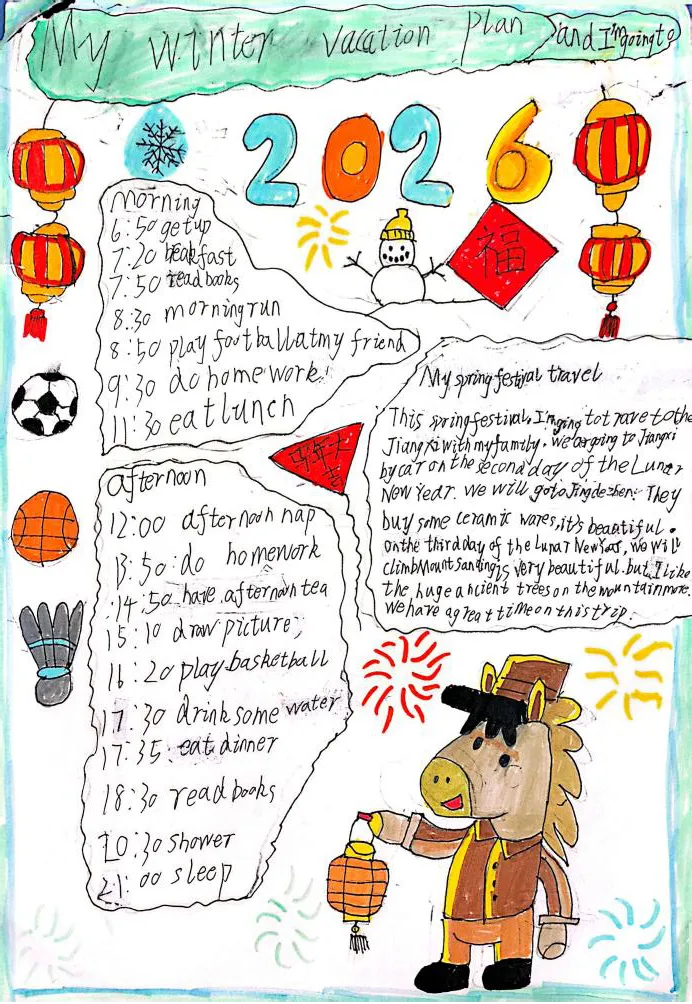 My winter vacation plan
and I'm going to
2026
福
morning
6:50 get up
7:20 beakfast
7:50 read books
8:30 morning run
8:50 play football at my friend
9:30 do homework!
11:30 eat lunch
My spring festival travel
This spring festival. I'm going to trave to the
Jiangxi with my family. we are going to Jiangxi
by car on the second day of the Lunar
New Year. We will go to Jingdezhen. They
buy some ceramic wares, it's beautiful.
on the third day of the Lunar New Year, we will
climb Mount Sanqing is very beautiful. but I like
the huge ancient trees on the mountain more.
We have a great time on this trip.
大吉
afternoon
12:00 afternoon nap
13:50 do homework
14:50 have afternoon tea
15:10 draw picture;
16:20 play basketball
17:30 drink some water
17:35 eat dinner
18:30 read books
20:30 shower
21:00 sleep